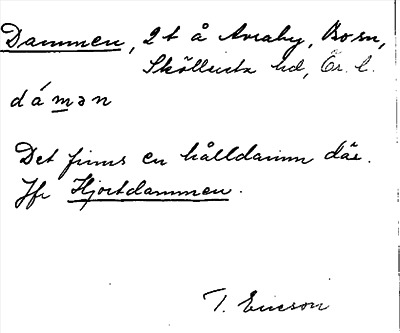 Dammen, 2 t å Avraby, Bo sn,
Sköllersta hd, Ör. l.
dámən
Det finns en hålldamm där.
Jfr Hjortdammen.
T. Ericson